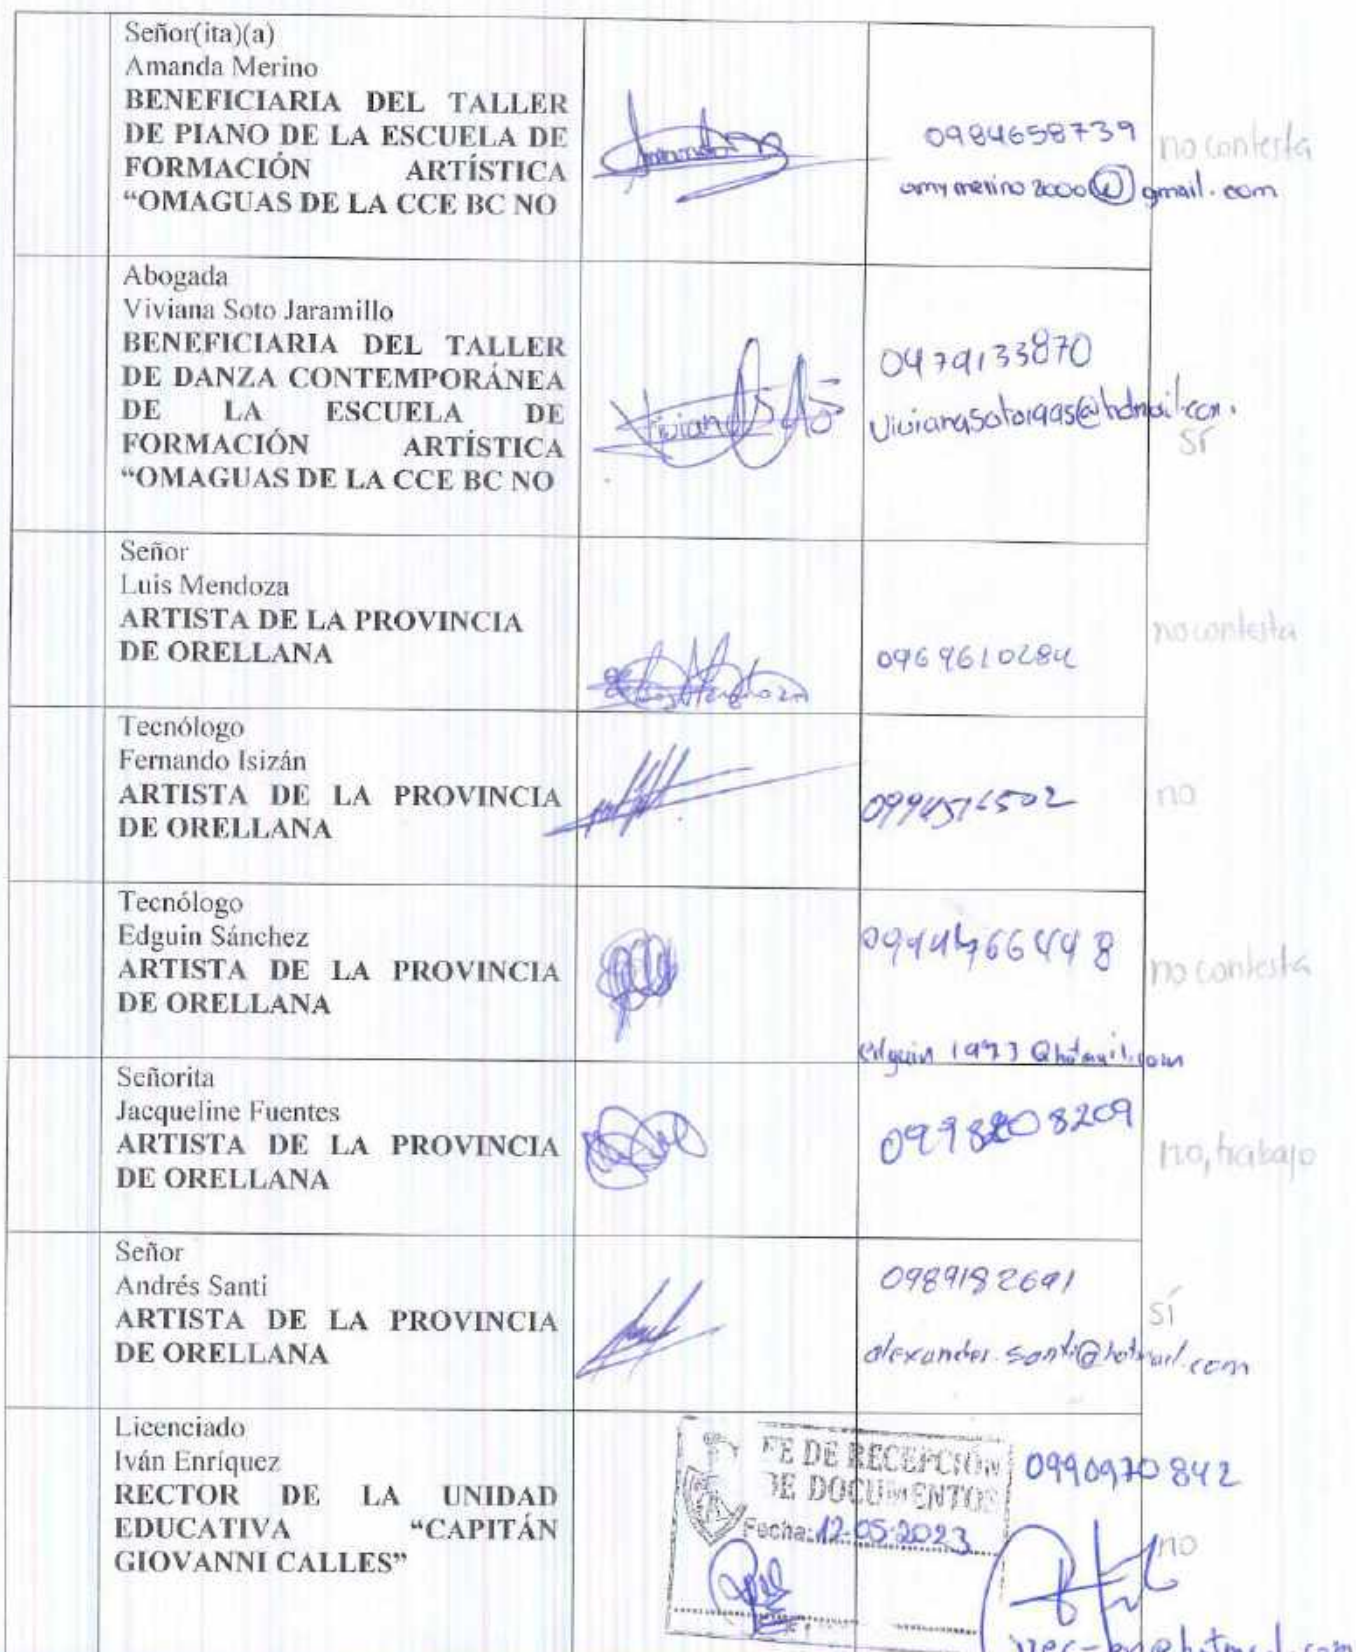 Señor(ita)(a)
Amanda Merino
BENEFICIARIA DEL TALLER
DE PIANO DE LA ESCUELA DE
FORMACIÓN ARTÍSTICA
“OMAGUAS DE LA CCE BC NO
0984658739
no contesta
amymerino2000@gmail.com
Abogada
Viviana Soto Jaramillo
BENEFICIARIA DEL TALLER
DE DANZA CONTEMPORÁNEA
DE LA ESCUELA DE
FORMACIÓN ARTÍSTICA
“OMAGUAS DE LA CCE BC NO
Vivian
0979133870
sí
Señor
Luis Mendoza
ARTISTA DE LA PROVINCIA
DE ORELLANA
no contesta
Tecnólogo
Fernando Isizán
ARTISTA DE LA PROVINCIA
DE ORELLANA
no
Tecnólogo
Edguin Sánchez
ARTISTA DE LA PROVINCIA
DE ORELLANA
no contesta
edguin1973@hotmail.com
Señorita
Jacqueline Fuentes
ARTISTA DE LA PROVINCIA
DE ORELLANA
no, trabajo
Señor
Andrés Santi
ARTISTA DE LA PROVINCIA
DE ORELLANA
0989182691
sí
alexander.santi@hotmail.com
Licenciado
Iván Enríquez
RECTOR DE LA UNIDAD
EDUCATIVA “CAPITÁN
GIOVANNI CALLES”
FE DE RECEPCIÓN
DE DOCUMENTOS
Fecha: 12-05-2023
0990970842
no